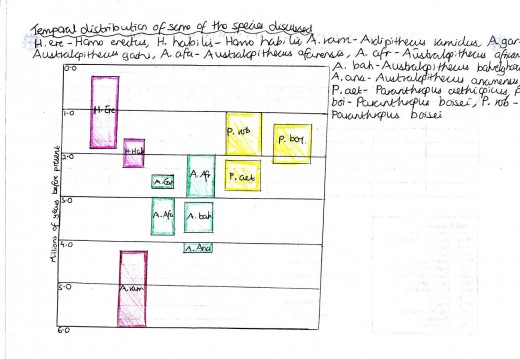 Temporal distribution of some of the species discussed
H. ere - Homo erectus, H. habilis - Homo habilis, A. ram - Ardipithecus ramidus, A. gar
Australopithecus garhi, A. afa - Australopithecus afarensis, A. afr - Australopithecus african
A. bah - Australopithecus bahrelghaza
A. ana - Australopithecus anamensis
P. aet - Paranthropus aethiopicus, P.
boi - Paranthropus boisei, P. rob -
Paranthropus boisei
Millions of years before present
0.0
H. Ere
1.0
P. rob
P. boi
H. Hab
2.0
A. Gar
A. Afr
P. aet
3.0
A. Afa
A. bah
4.0
A. Ana
A. ram
5.0
6.0